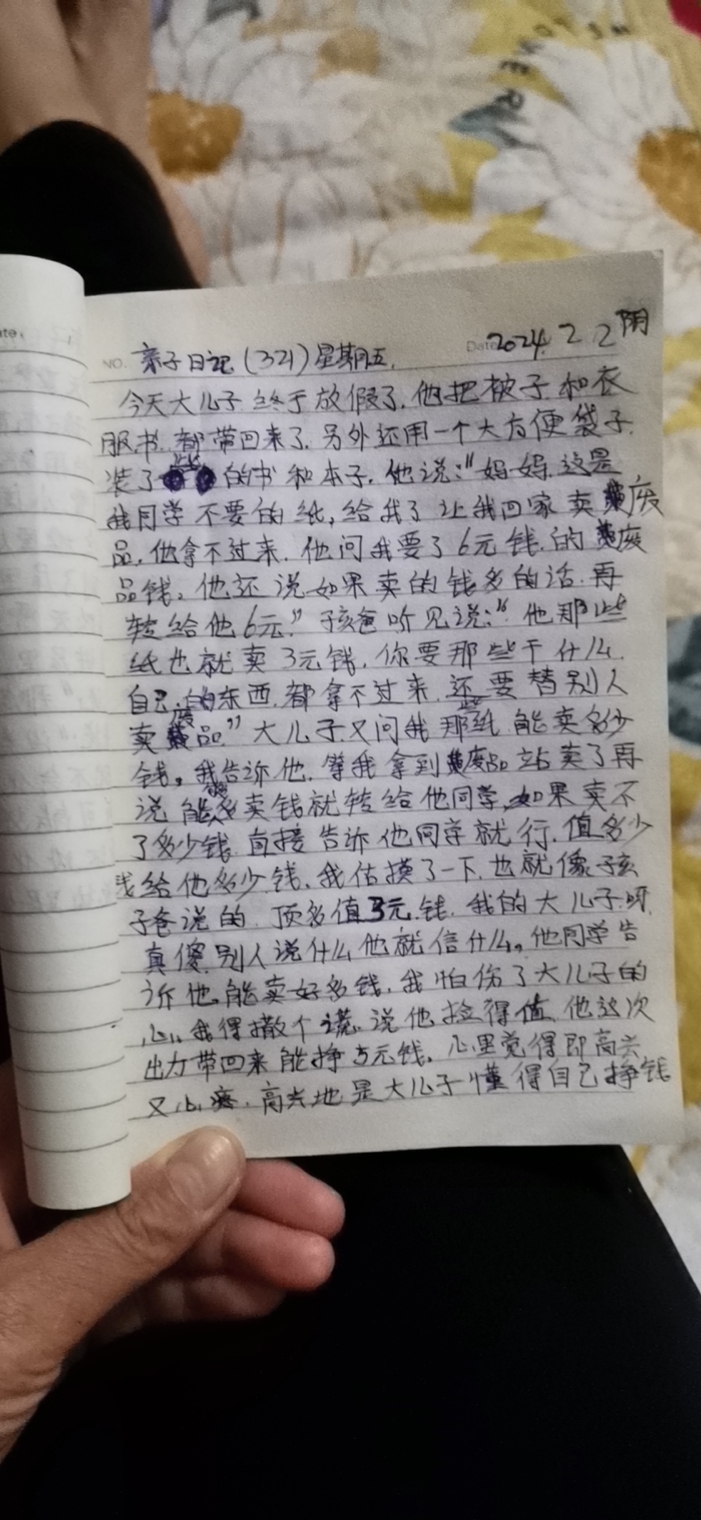 NO. 亲子日记(321)星期五. Date 2024.2.2 阴
今天大儿子终于放假了.他把被子和衣
服.书.都带回来了.另外还用一个大方便袋子.
装了些的书和本子.他说:"妈妈.这是
我同学不要的纸,给我了让我回家卖废
品.他拿不过来.他问我要了6元钱.的废
品钱.他还说如果卖的钱多的话.再
转给他6元."孩爸听见说:"他那些
纸也就卖3元钱.你要那些干什么.
自己的东西.都拿不过来.还要替别人
卖废品."大儿子又问我那些纸能卖多少
钱。我告诉他.等我拿到废品站卖了再
说能多卖钱就转给他同学.如果卖不
了多少钱.直接告诉他同学就行.值多少
钱给他多少钱.我估摸了一下.也就像孩
子爸说的.顶多值3元.钱.我的大儿子呀.
真傻.别人说什么他就信什么。他同学告
诉他.能卖好多钱.我怕伤了大儿子的
心.我得撒个谎.说他捡得值.他这次
出力带回来能挣5元钱.心里觉得即高兴
又心疼.高兴地是大儿子懂得自己挣钱